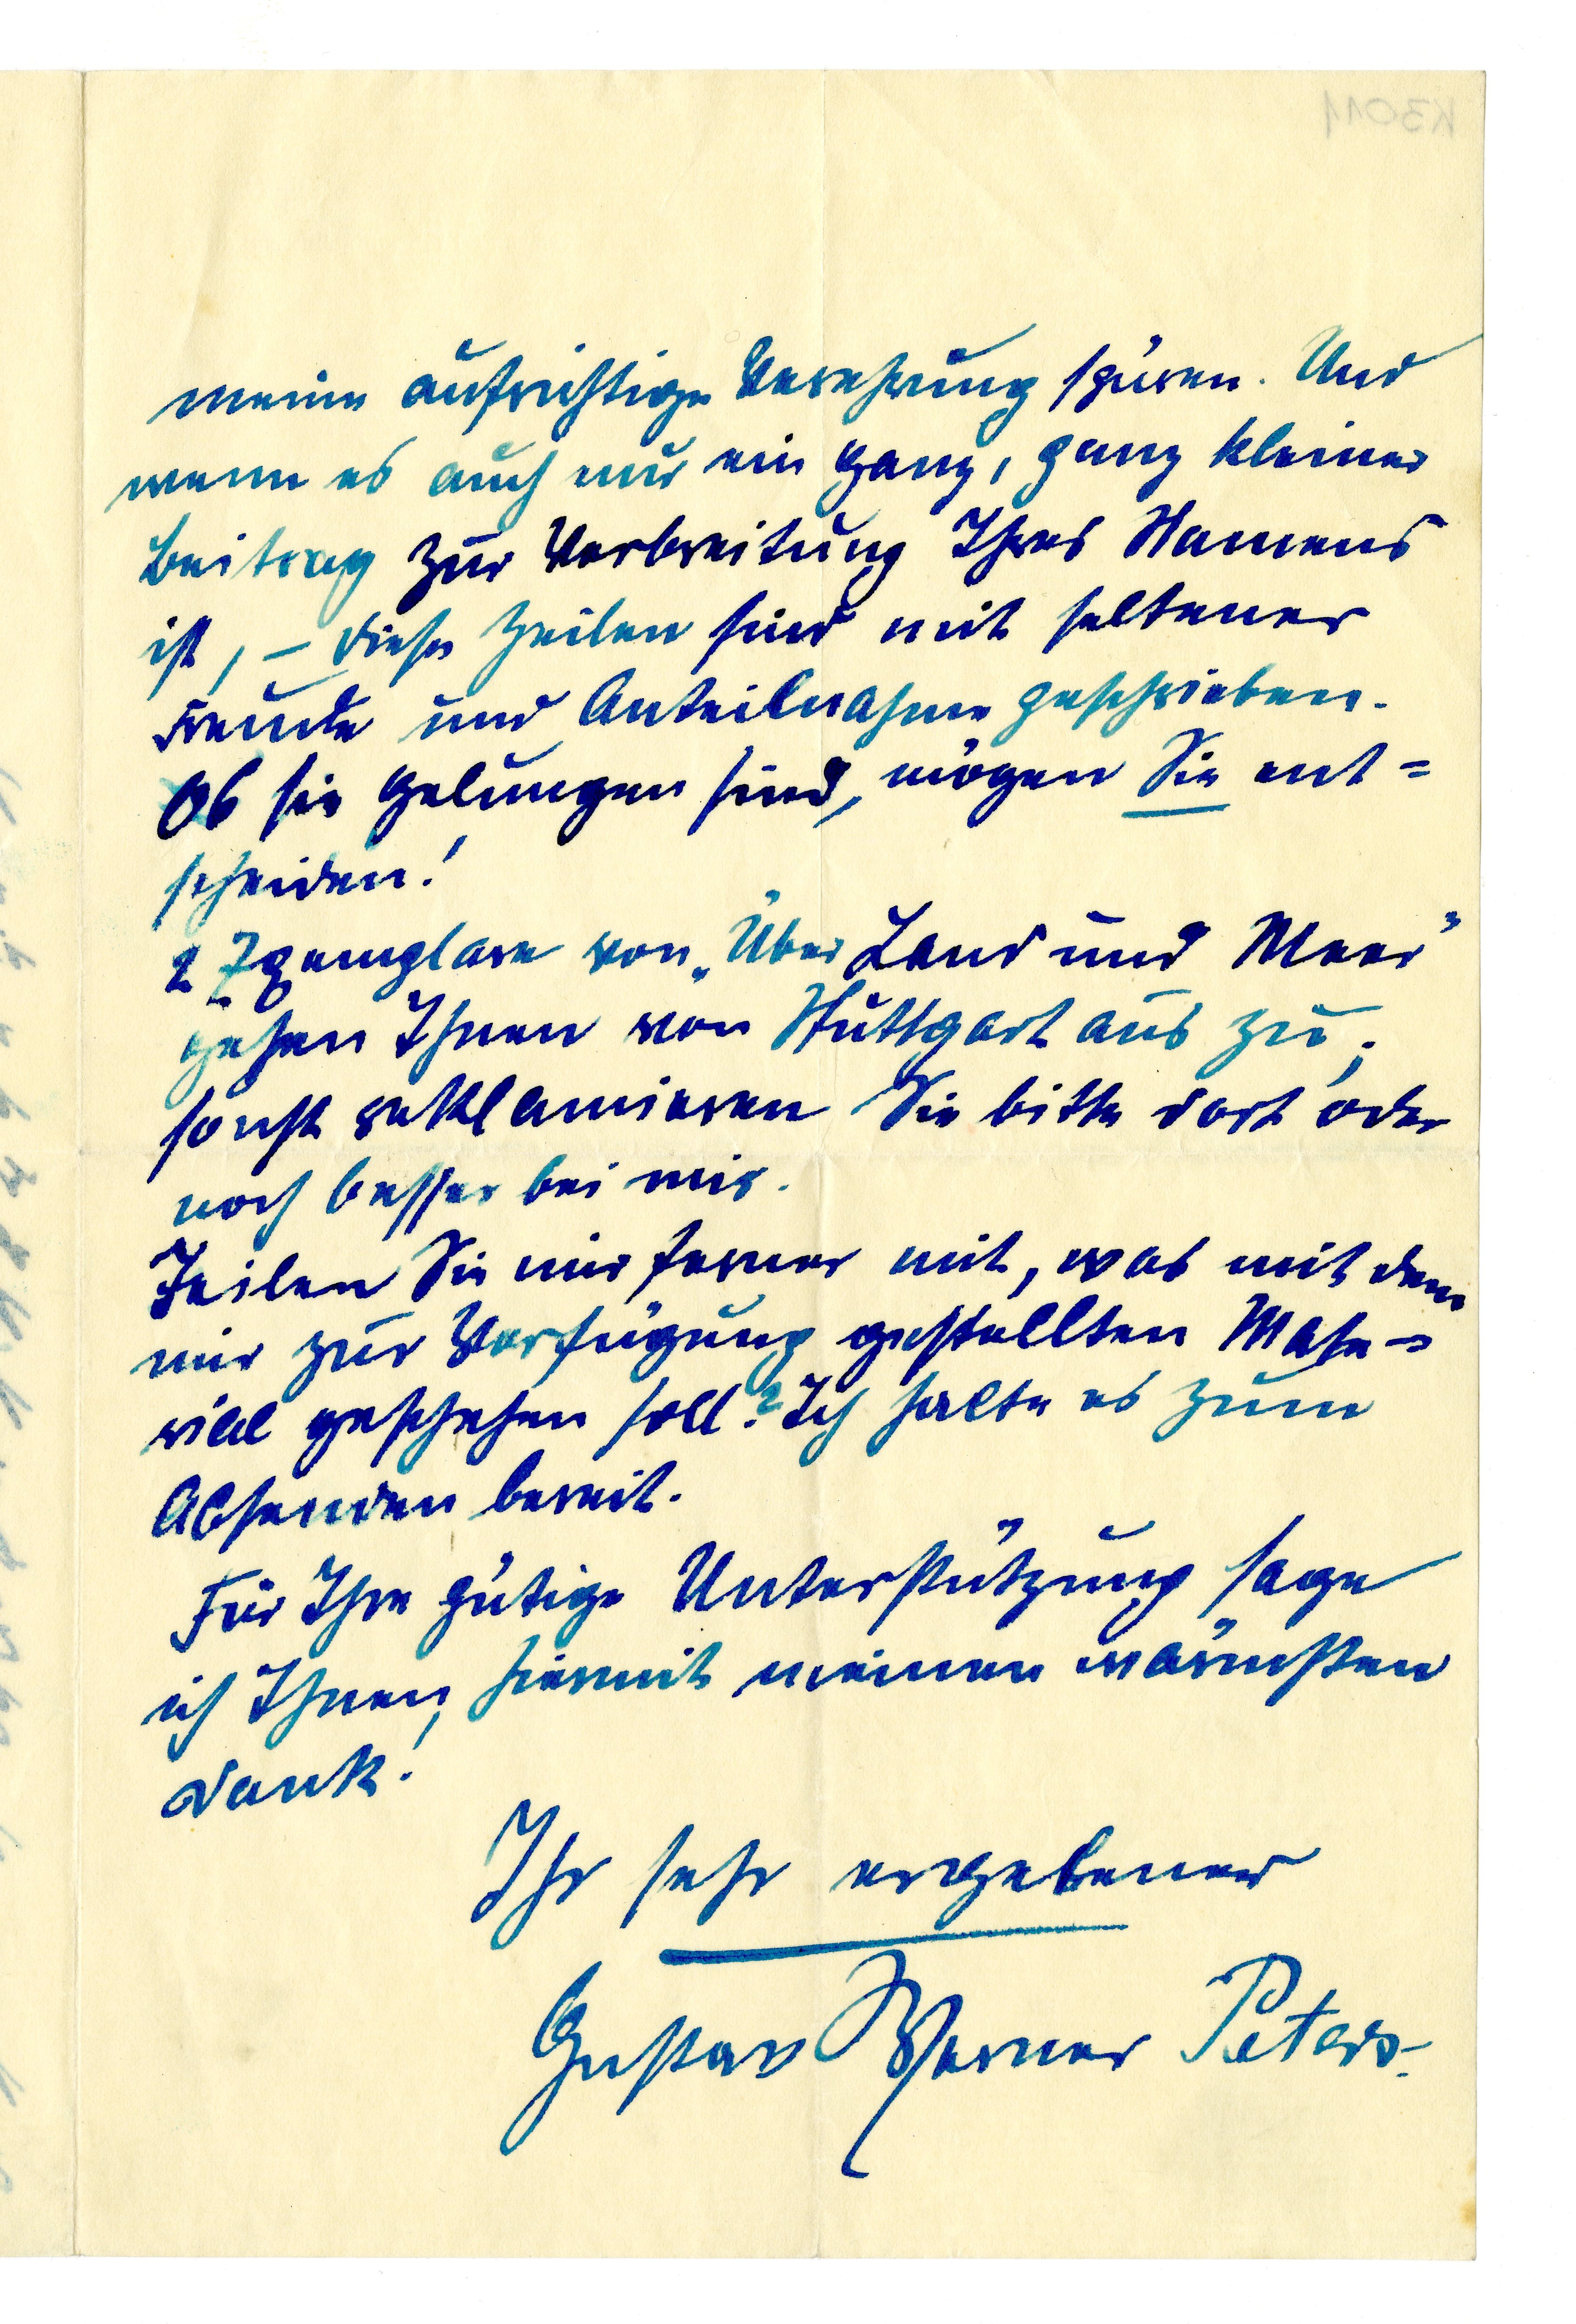 meine aufrichtige Verehrung spüren. Und
wenn es auch nur ein ganz, ganz kleiner
Beitrag zur Verbreitung Ihres Namens
ist, – diese Zeilen sind mit seltener
Freude und Anteilnahme geschrieben.
Ob sie gelungen sind, mögen Sie ent=
scheiden!
2 Exemplare von „Über Land und Meer"
gehen Ihnen von Stuttgart aus zu;
sonst reklamieren Sie bitte dort oder
noch besser bei mir.
Teilen Sie mir ferner mit, was mit dem
mir zur Verfügung gestellten Mate=
rial geschehen soll? Ich halte es zum
Absenden bereit.
Für Ihre gütige Unterstützung sage
ich Ihnen, hiermit meinen wärmsten
Dank!
Ihr sehr ergebener
Gustav Werner Peters.